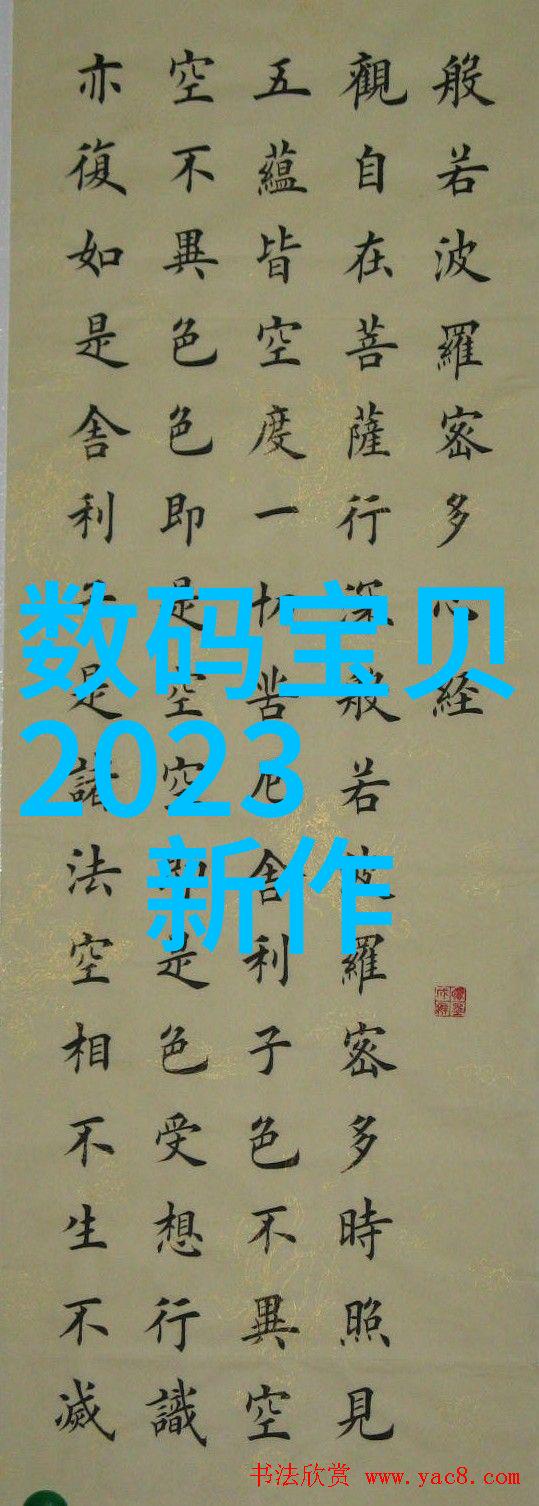 般若波羅密多心経
觀自在菩薩行深般若波羅密多時照見
五蘊皆空度一切苦厄舍利子色不異空
空不異色色即是空空即是色受想行識
亦復如是舍利子是諸法空相不生不滅
数码宝贝
2023
新作
书法欣赏 www.yac8.com